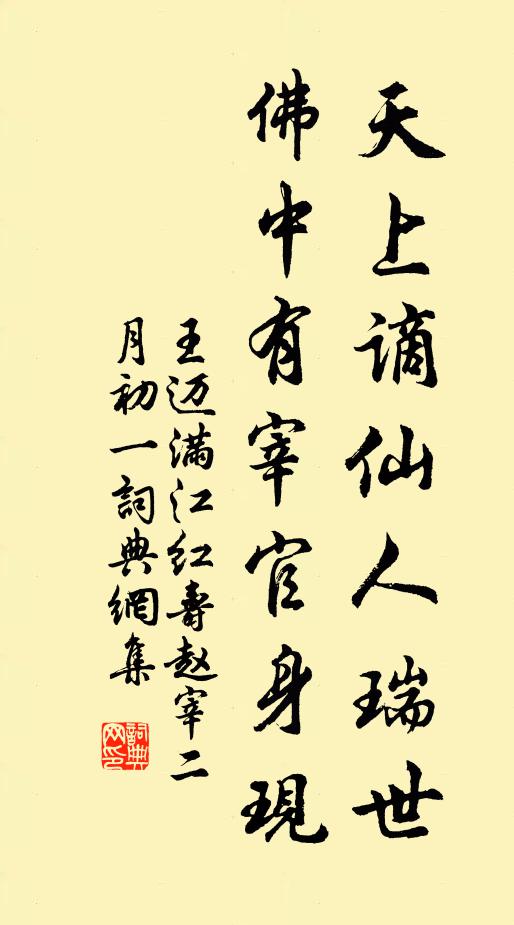 天上謫仙人瑞世
佛中有宰官身現
王迈滿江红壽赵宰二
月初一詞典網集
詞典
网印